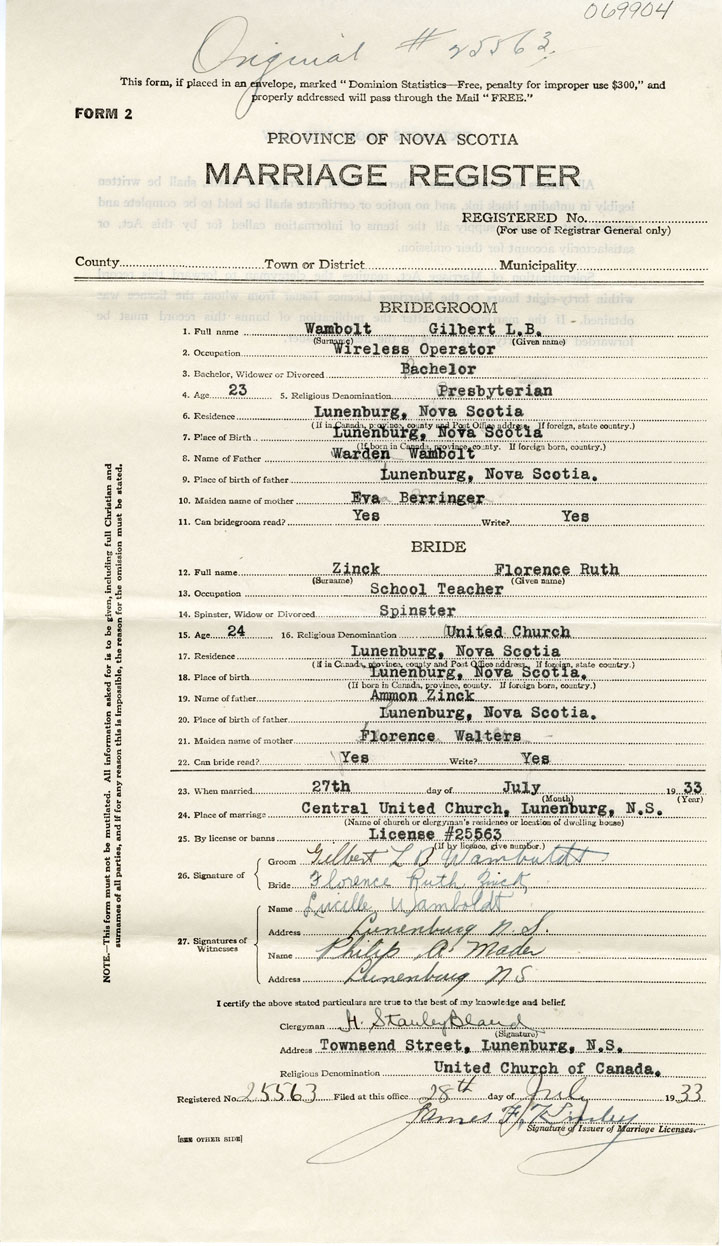 069904
Original # 25563.
This form, if placed in an envelope, marked “ Dominion Statistics—Free, penalty for improper use $300,” and
properly addressed will pass through the Mail “ FREE.”
FORM 2
PROVINCE OF NOVA SCOTIA
MARRIAGE REGISTER
REGISTERED No.
(For use of Registrar General only)
County Town or District Municipality
BRIDEGROOM
1. Full name Wambolt Gilbert L.B.
(Surname) (Given name)
2. Occupation Wireless Operator
3. Bachelor, Widower or Divorced Bachelor
4. Age 23 5. Religious Denomination Presbyterian
6. Residence Lunenburg, Nova Scotia
(If in Canada, province, county and Post Office address. If foreign, state country.)
7. Place of Birth Lunenburg, Nova Scotia
(If born in Canada, province, county. If foreign born, country.)
8. Name of Father Warden Wambolt
9. Place of birth of father Lunenburg, Nova Scotia.
10. Maiden name of mother Eva Berringer
11. Can bridegroom read? Yes Write? Yes
BRIDE
12. Full name Zinck Florence Ruth
(Surname) (Given name)
13. Occupation School Teacher
14. Spinster, Widow or Divorced Spinster
15. Age 24 16. Religious Denomination United Church
17. Residence Lunenburg, Nova Scotia
(If in Canada, province, county and Post Office address. If foreign, state country.)
18. Place of birth Lunenburg, Nova Scotia.
(If born in Canada, province, county. If foreign born, country.)
19. Name of father Ammon Zinck
20. Place of birth of father Lunenburg, Nova Scotia.
21. Maiden name of mother Florence Walters
22. Can bride read? Yes Write? Yes
23. When married 27th day of July 1933
(Month) (Year)
24. Place of marriage Central United Church, Lunenburg, N.S.
(Name of church or clergyman's residence or location of dwelling house)
25. By license or banns License #25563
(If by licence, give number.)
26. Signature of
Groom Gilbert L B Wamboldt
Bride Florence Ruth Zinck
27. Signatures of Witnesses
Name Lucille Wamboldt
Address Lunenburg N.S.
Name Philip A. Mader
Address Lunenburg NS
I certify the above stated particulars are true to the best of my knowledge and belief.
Clergyman H. Stanley Bland
(Signature)
Address Townsend Street, Lunenburg, N.S.
Religious Denomination United Church of Canada.
Registered No. 25563 Filed at this office 28th day of July 1933
James F.
Signature of Issuer of Marriage Licenses.
[SEE OTHER SIDE]
NOTE.—This form must not be mutilated. All information asked for is to be given, including full Christian and
surnames of all parties, and if for any reason this is impossible, the reason for the omission must be stated.